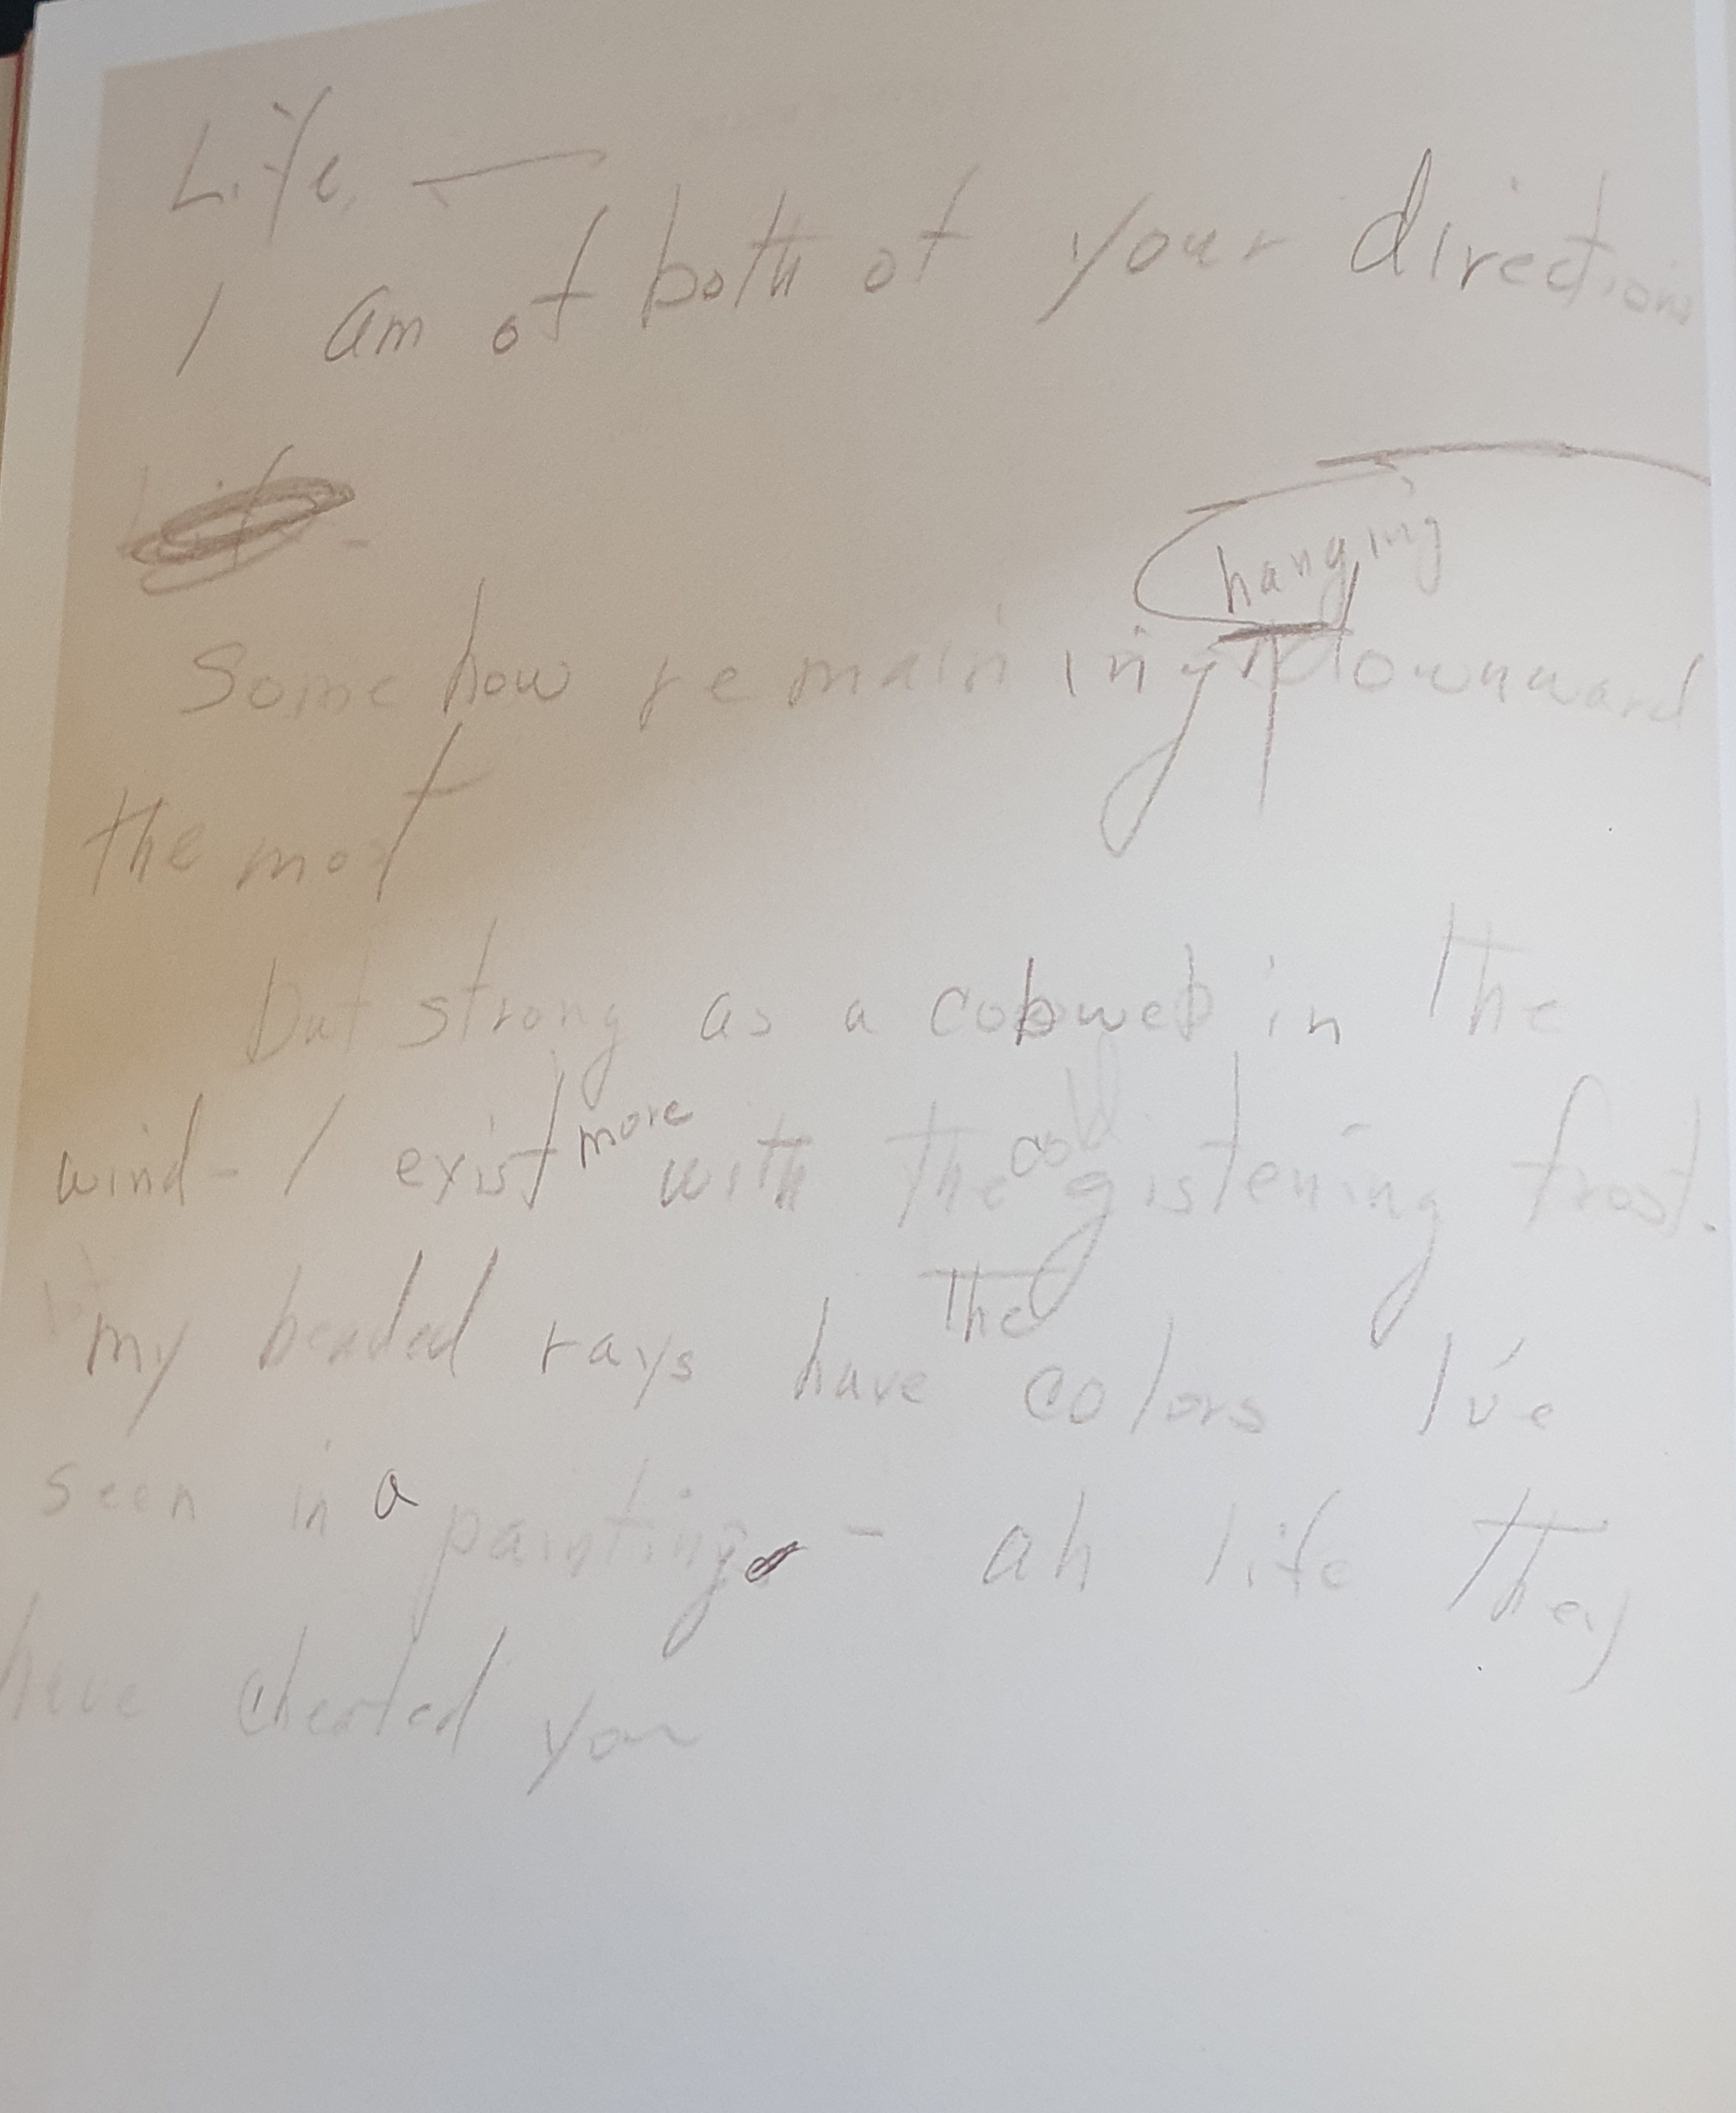 Life, —
I am of both of your directions
Some how remaining hanging downward
the most
but strong as a cobweb in the
wind - I exist more with the cold gistening frost.
my beaded rays have the colors I've
seen in a painting - ah life they
have cheated you